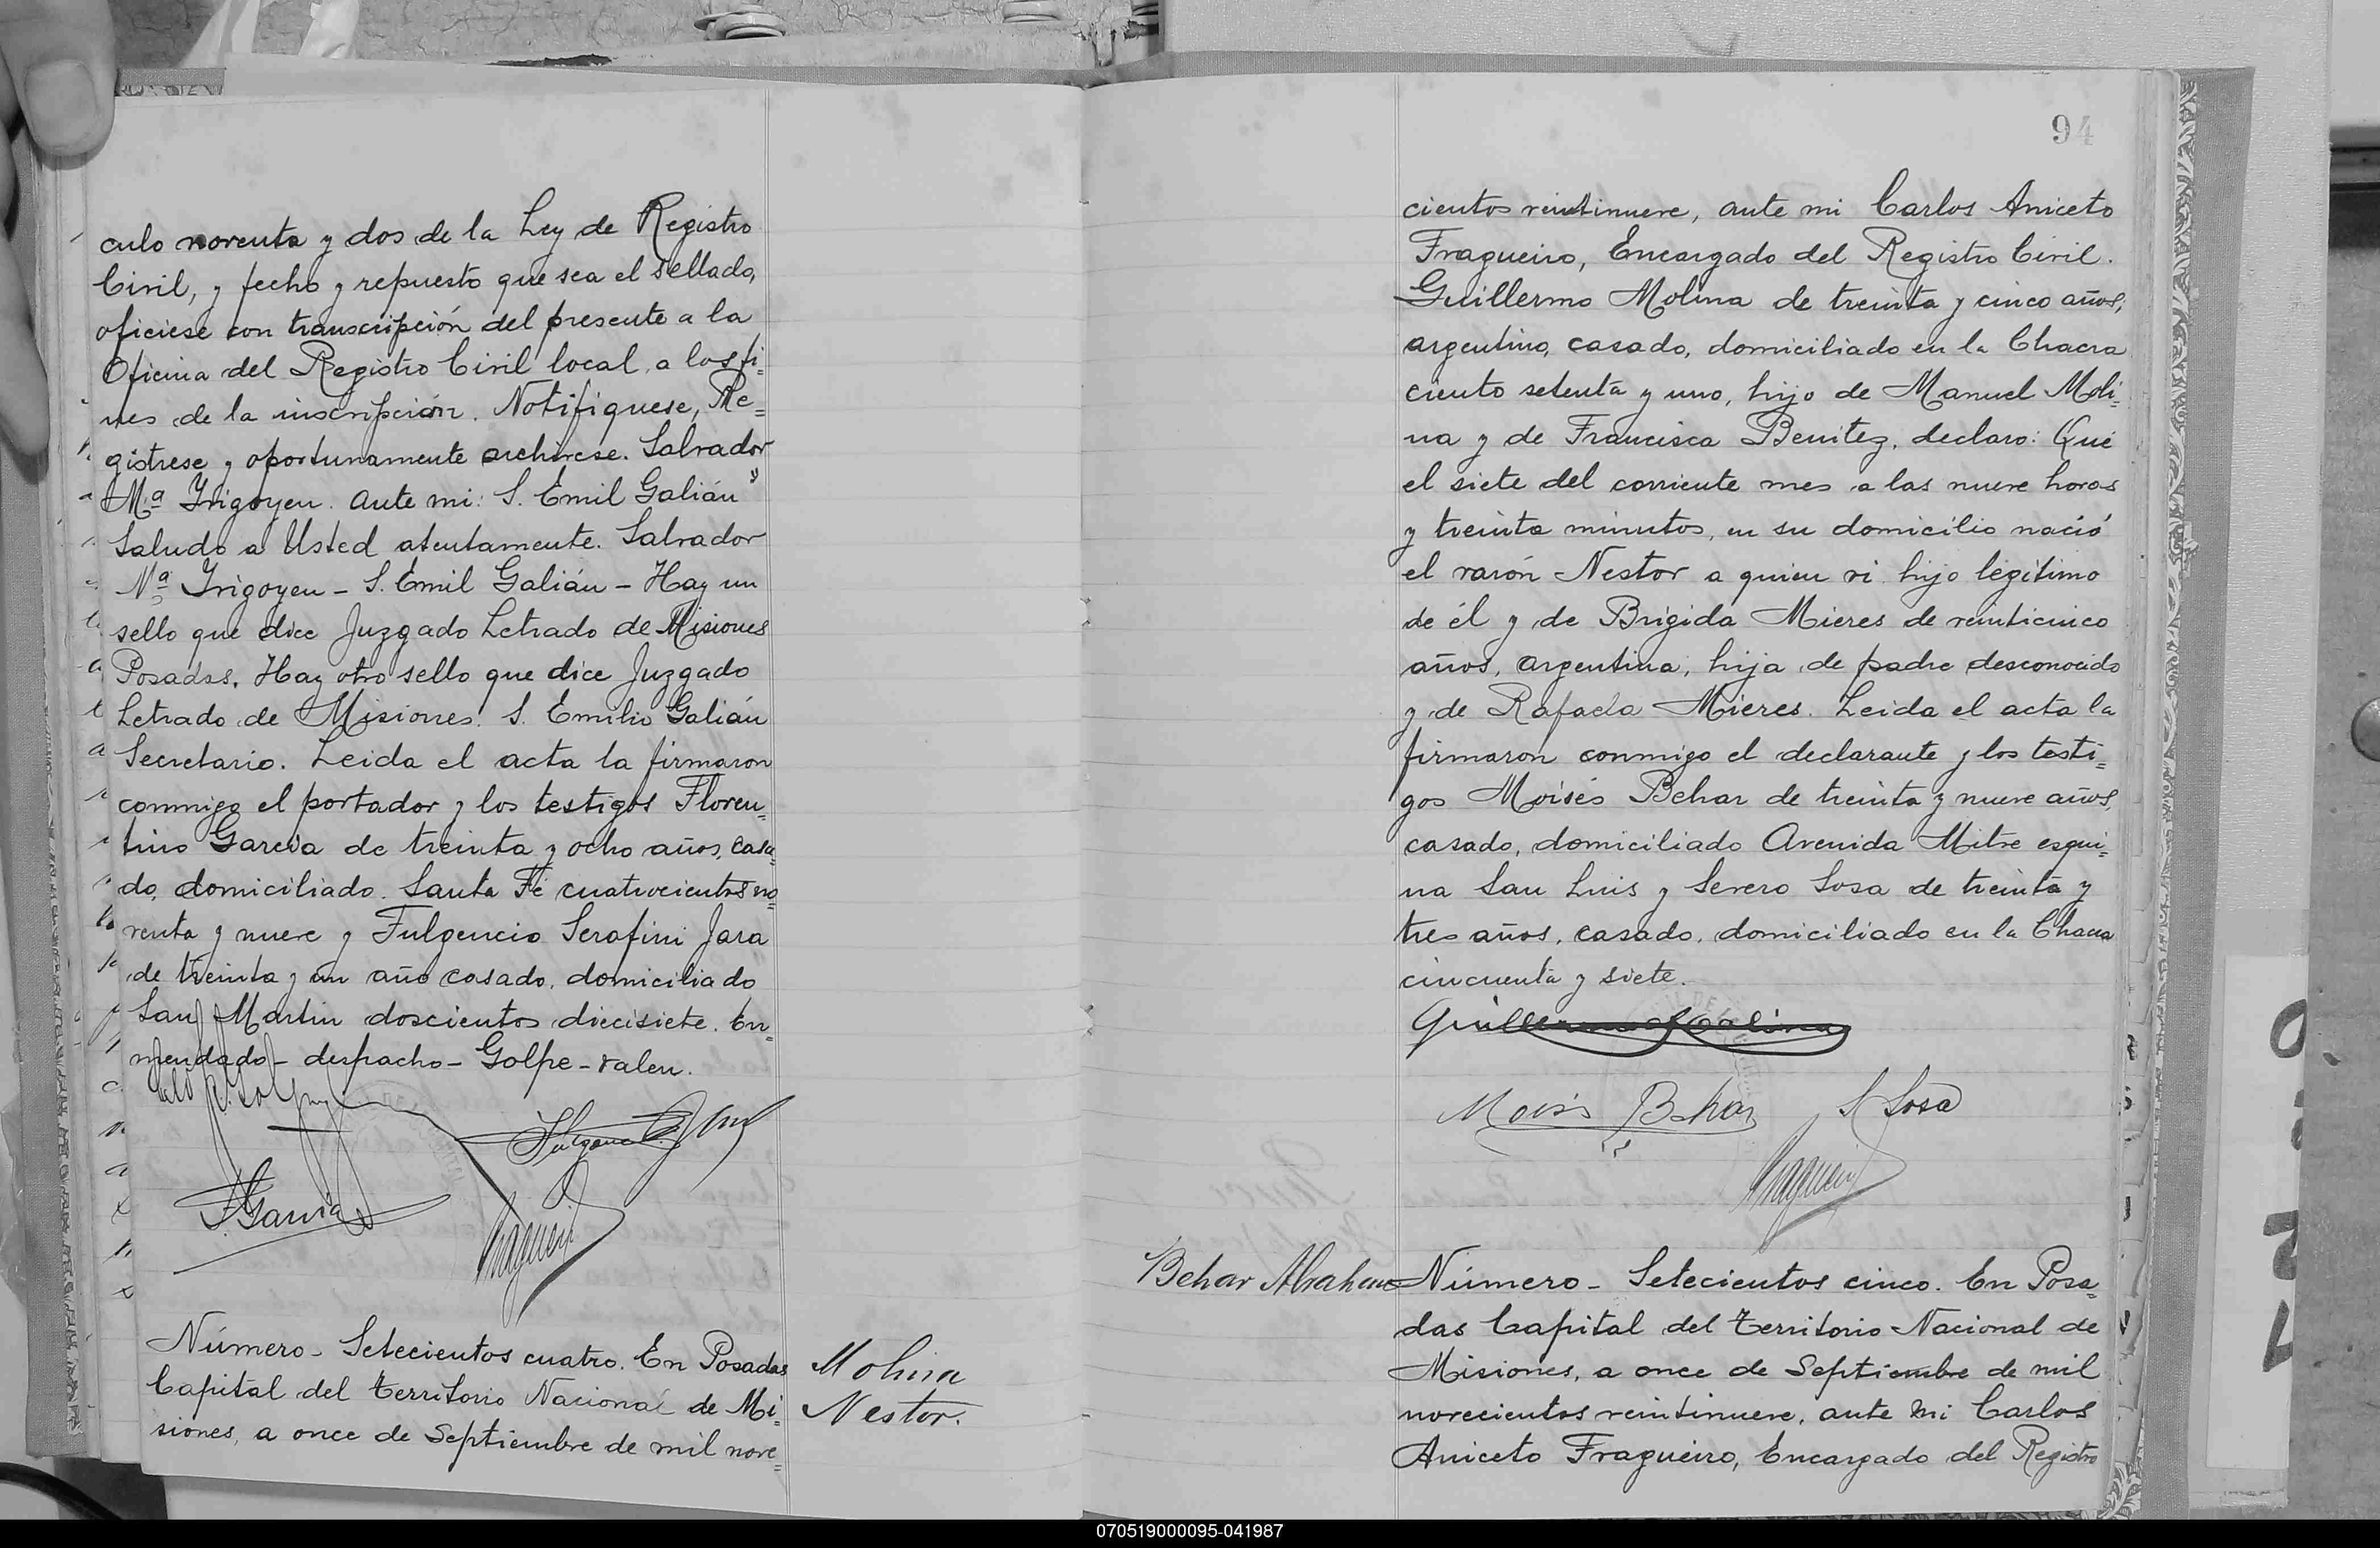 culo noventa y dos de la Ley de Registro
Civil, y fecho y repuesto que sea el sellado,
oficiese con transcripción del presente a la
Oficina del Registro Civil local, a los fi=
nes de la inscripción. Notifiquese, Re=
gistrese y oportunamente archivese. Salvador
Mª Yrigoyen. Ante mi: S. Emil Galián"
Saludo a Usted atentamente. Salvador
Mª Yrigoyen - S. Emil Galián - Hay un
sello que dice Juzgado Letrado de Misiones
Posadas. Hay otro sello que dice Juzgado
Letrado de Misiones. S. Emilio Galián
Secretario. Leida el acta la firmaron
conmigo el portador y los testigos Floren=
tino Garcia de treinta y ocho años, casa=
do, domiciliado Santa Fé cuatrocientos no=
venta y nueve y Fulgencio Serafini Jara
de treinta y un año casado, domiciliado
San Martin doscientos diecisiete. En=
mendado - despacho - Golpe - valen.
F. Garcia
Fragueiro
Número - Setecientos cuatro. En Posadas
Capital del Territorio Nacional de Mi=
siones, a once de Septiembre de mil nove=
Molina
Nestor.
94
cientos veintinueve, ante mi Carlos Aniceto
Fragueiro, Encargado del Registro Civil.
Guillermo Molina de treinta y cinco años,
argentino, casado, domiciliado en la Chacra
ciento setenta y uno, hijo de Manuel Moli=
na y de Francisca Benitez, declaro: Que
el siete del corriente mes a las nueve horas
y treinta minutos, en su domicilio nació
el varón Nestor a quien vi hijo legítimo
de él y de Brigida Mieres de veinticinco
años, argentina, hija de padre desconocido
y de Rafaela Mieres. Leida el acta la
firmaron conmigo el declarante y los testi=
gos Moisés Behar de treinta y nueve años,
casado, domiciliado Avenida Mitre esqui=
na San Luis y Severo Sosa de treinta y
tres años, casado, domiciliado en la Chacra
cincuenta y siete.
Guillermo Molina
Moisés Behar S Sosa
Fragueiro
Behar Abraham
Número - Setecientos cinco. En Posa=
das Capital del Territorio Nacional de
Misiones, a once de Septiembre de mil
novecientos veintinueve, ante mi Carlos
Aniceto Fragueiro, Encargado del Registro
070519000095-041987